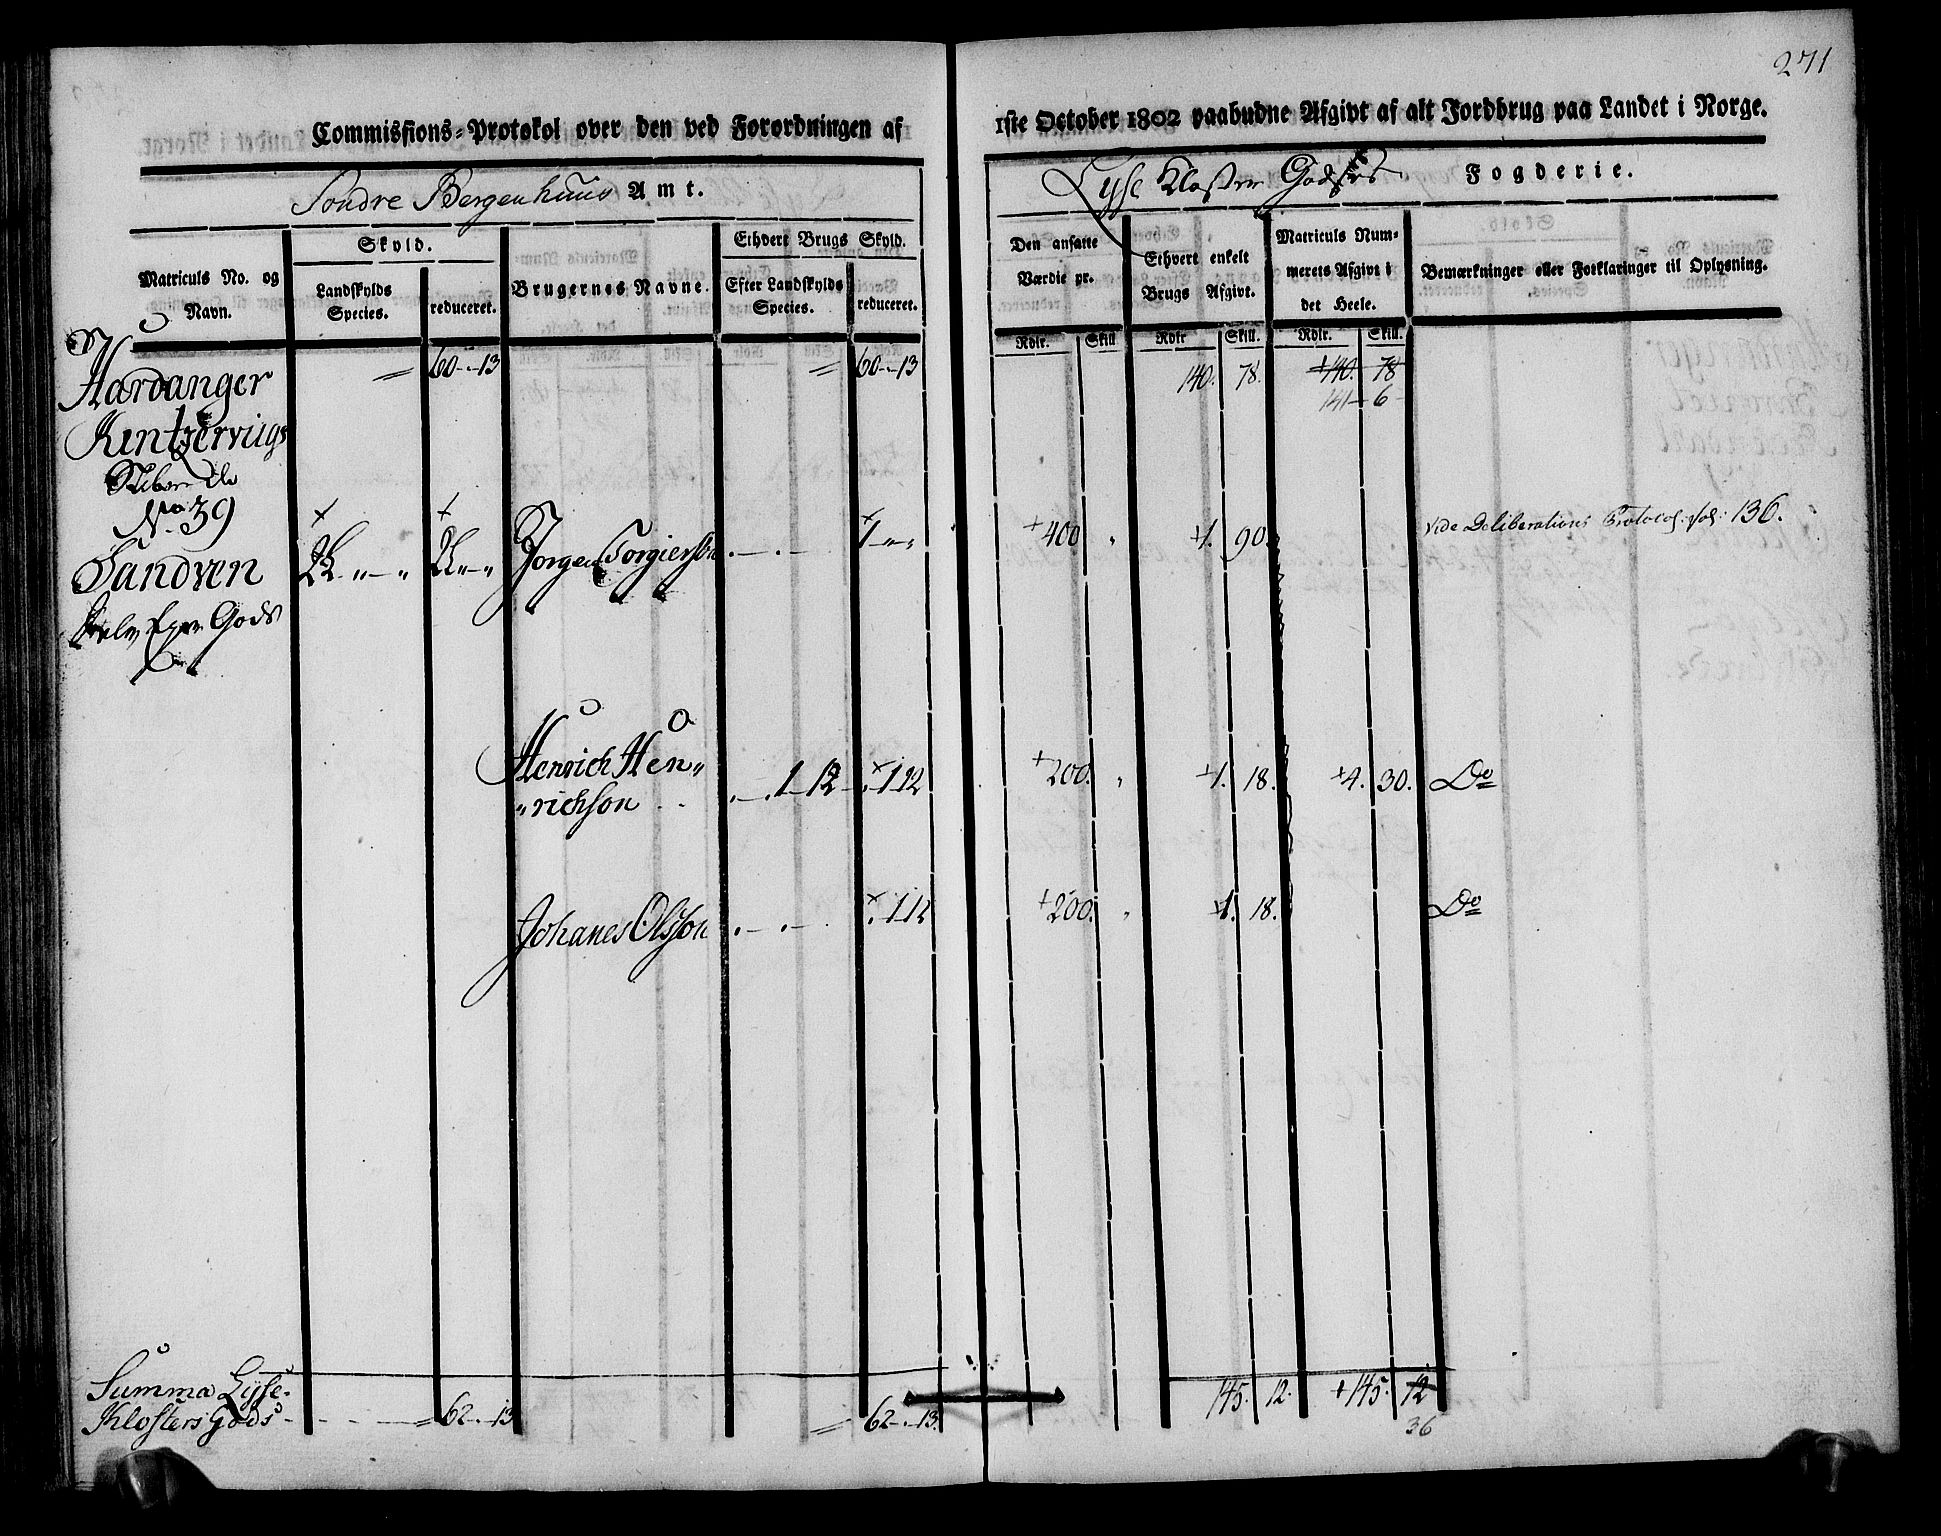 271
Commissions=Protokol over den ved Forordningen af 1ste October 1802 paabudne Afgivt af alt Jordbrug paa Landet i Norge.
Sondre Bergenhuus Amt.
Lyse Kloster Godses Fogderie.
Matriculs No. og Navn.
Skyld.
Landskylds Species.
reduceret.
Brugernes Navne.
Ethvert Brugs Skyld.
Efter Landskylds Species.
reduceret.
Den ansatte Værdie pr.
Ethvert enkelt Brugs Afgivt.
Matriculs Nummerets Afgivt i det Heele.
Bemærkninger eller Forklaringer til Oplysning.
Rdlr. Skill Rdlr Skill. Rdlr. Skill.
= 60-.-13 = 60-.-13 140. 78. +140. 78
141- 6-
Hardanger
Kintzerviigs
Skibrede
No. 39
Sandven
Gods
2 „-„ 2 „-„ Jorgen Torgierson .-.-. 1-„-„ +400 „ +1. 90. vide Deliberations Protocol. fol: 136.
Henrich Hen„
„richson .-.1-12-. 1 12 +200. „ +1. 18. +4. 30. Do
Johanes Olsson .-.-. 1 12 +200. „ +1. 18. Do
Summa Lyse-
Klosters Gods - - - = 62-.-13 = 62-.-13. 145. 12. +145. 12
36